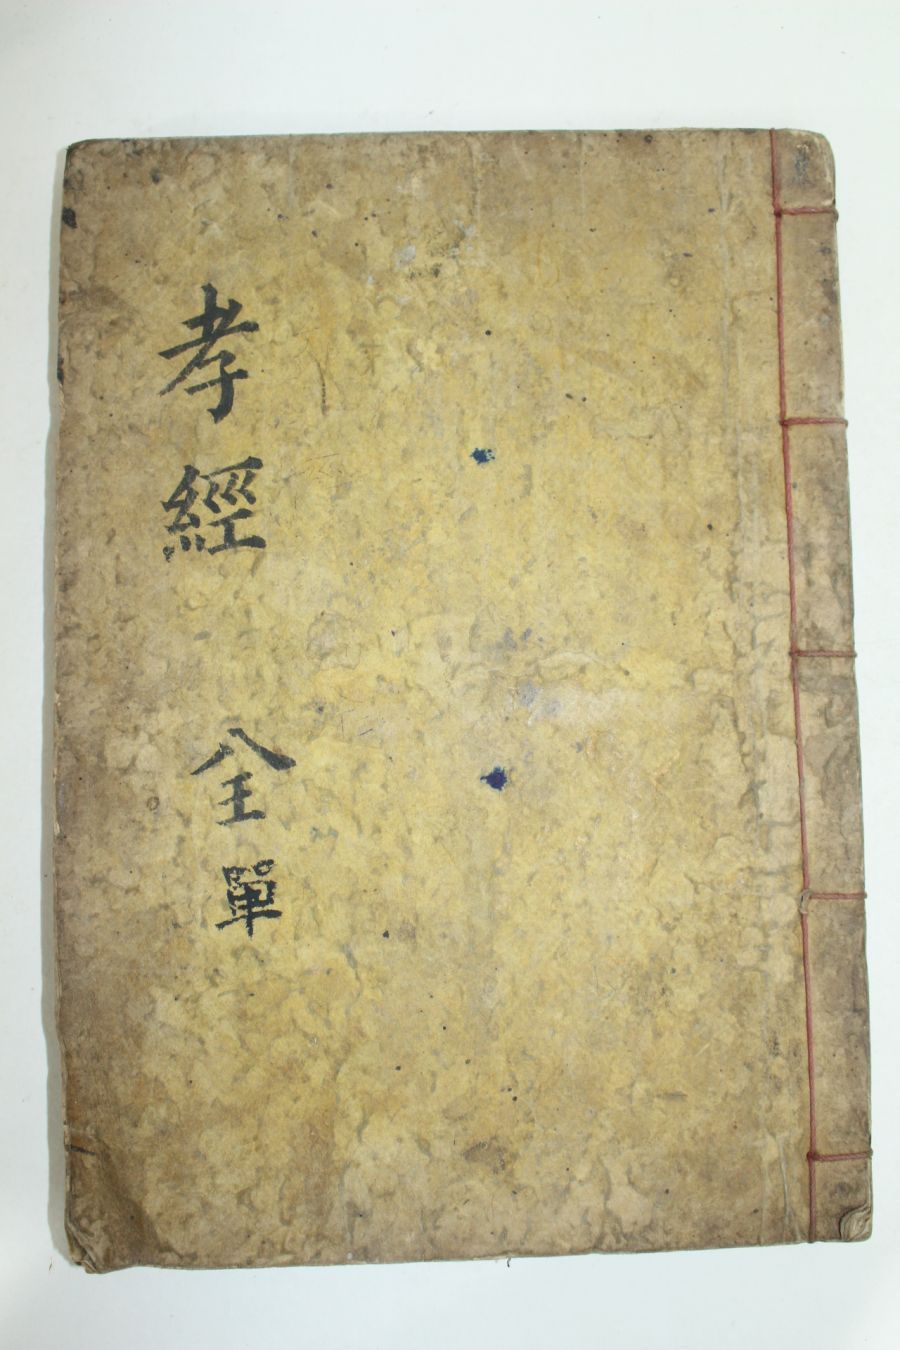 孝經 全單